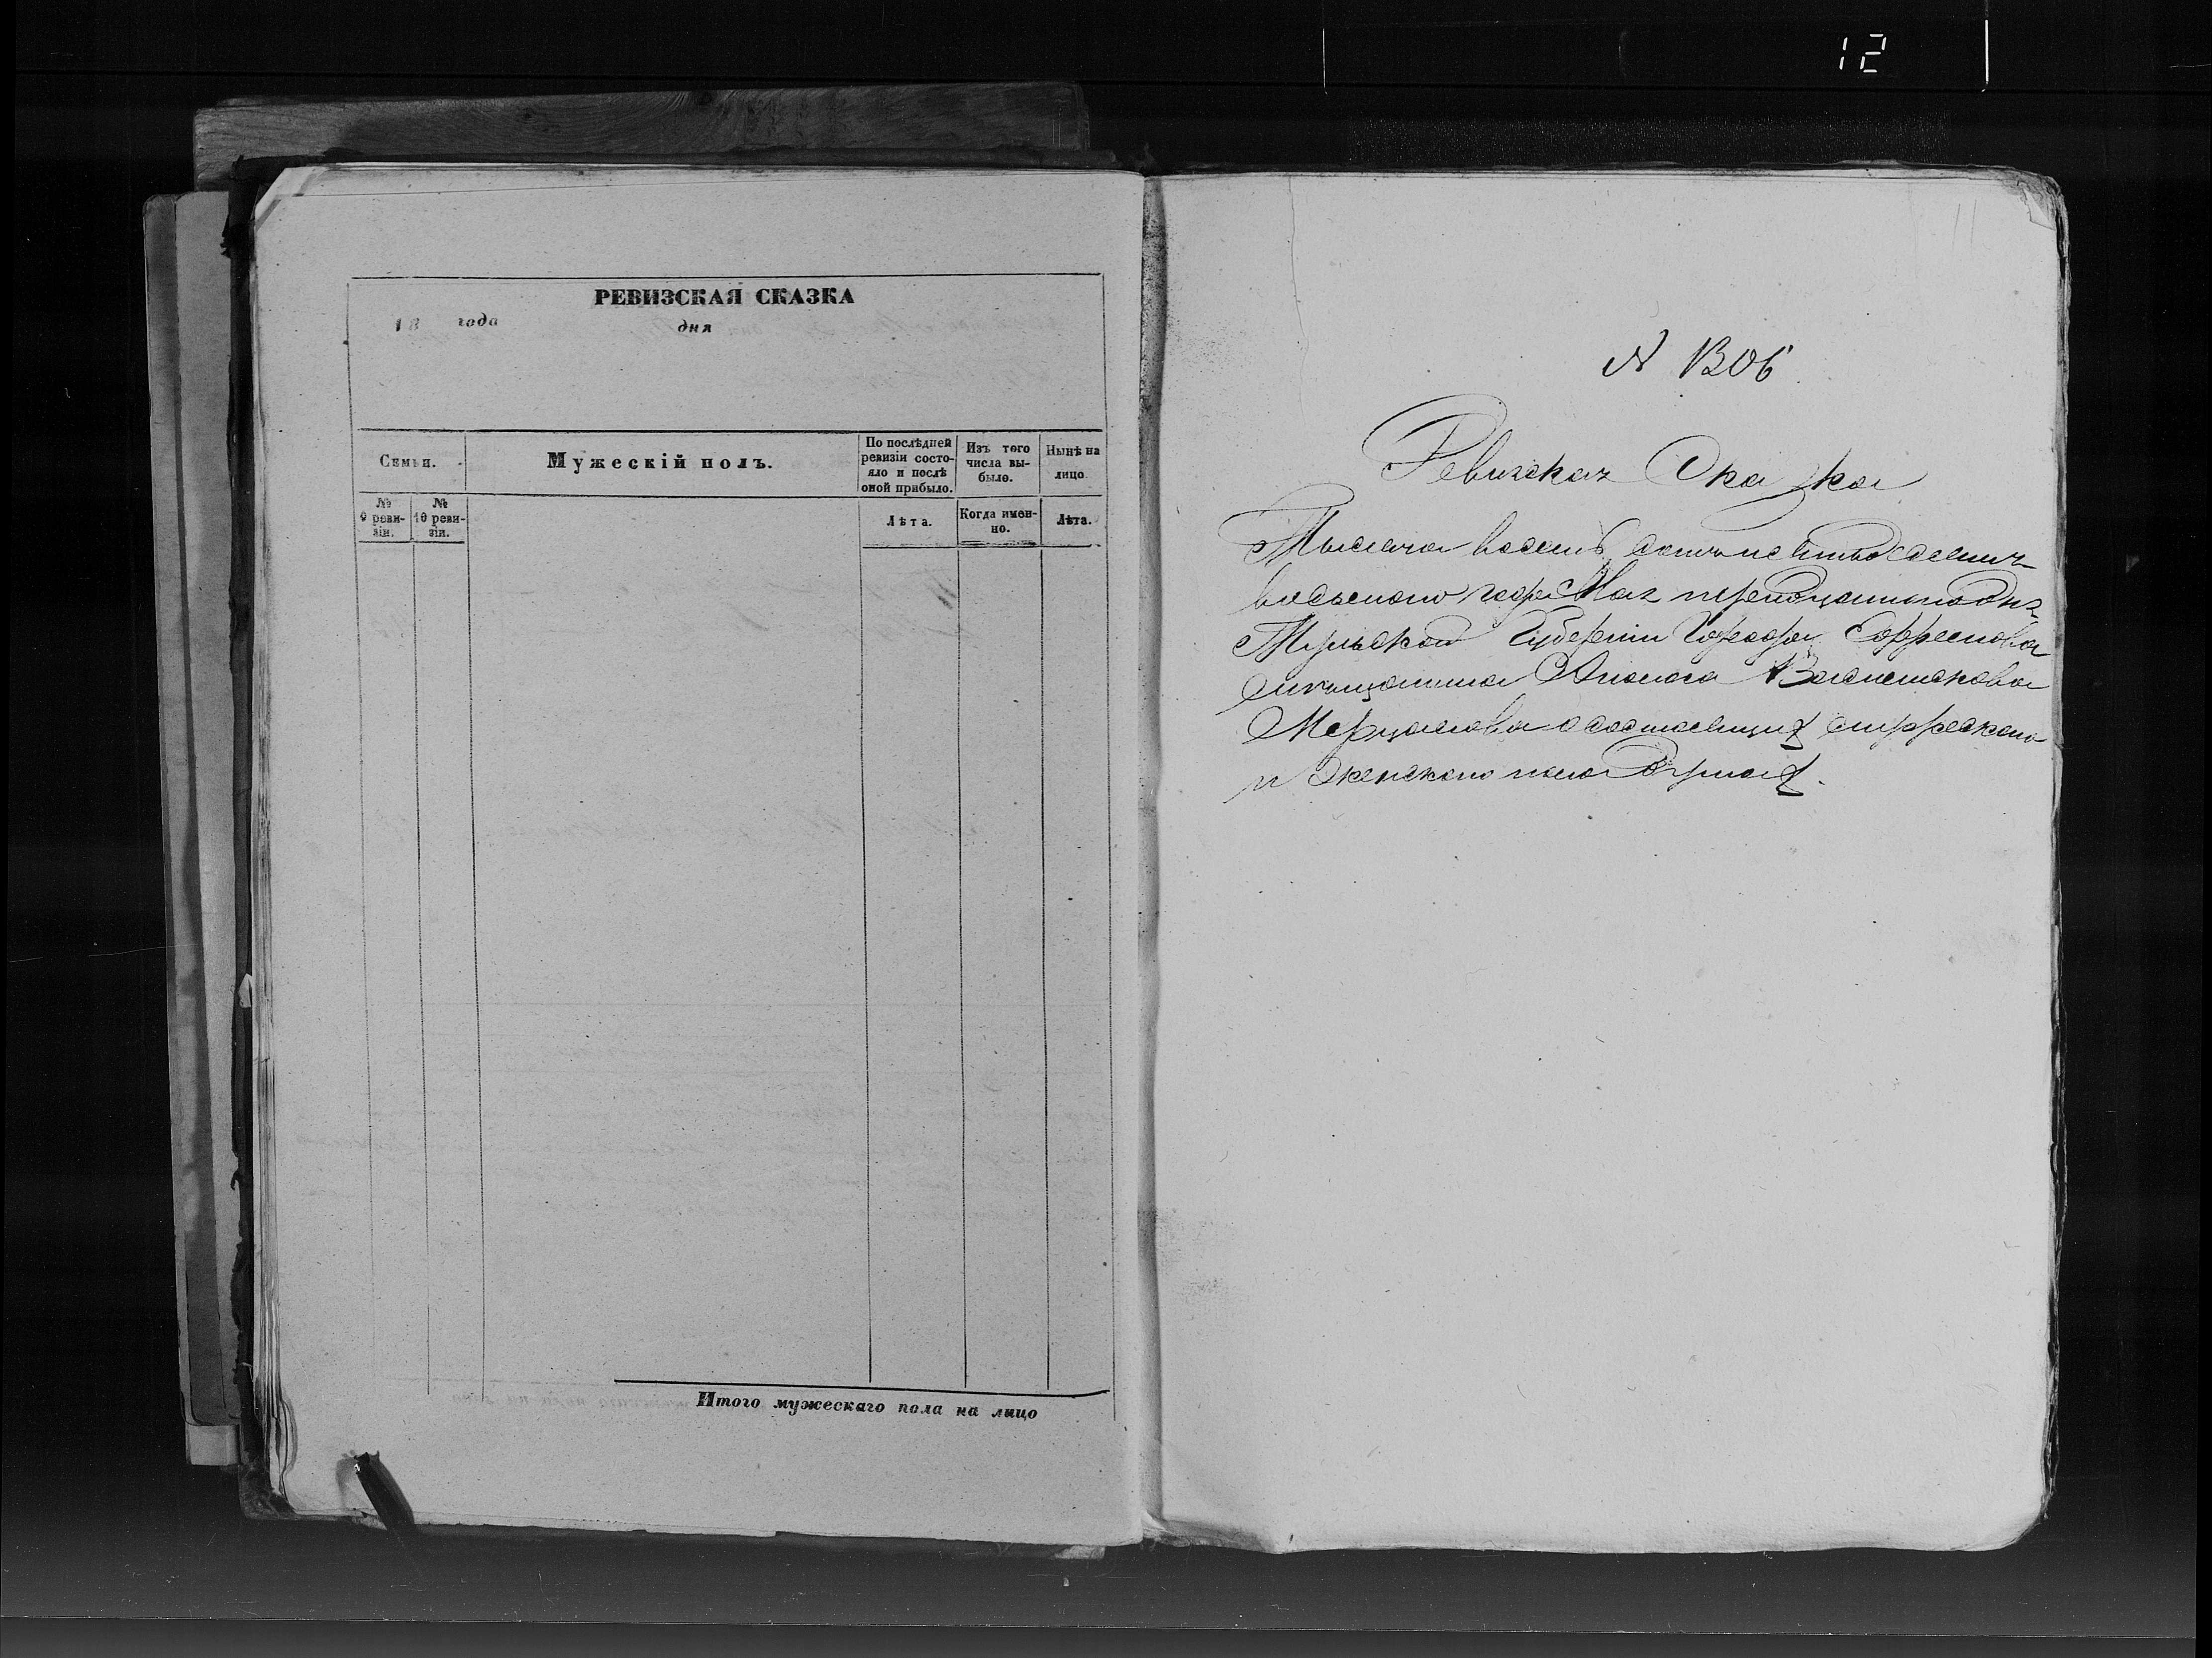 12
11
РЕВИЗСКАЯ СКАЗКА
18 года дня
Семьи.
Мужескій полъ.
По послѣдней ревизіи состояло и послѣ оной прибыло.
Изъ того числа выбыло.
Нынѣ на лицо
№ 9 ревизіи.
№ 10 ревизіи.
Лѣта.
Когда именно.
Лѣта.
Итого мужескаго пола на лицо
№ 1306
Ревизская Сказка
Тысяча восемь сотъ пятьдесятъ
восьмого года Мая дня
Тульской Губерніи Города Ефремова
мещанина
Мерцалова о состоящихъ мужеского
и женского пола душахъ.